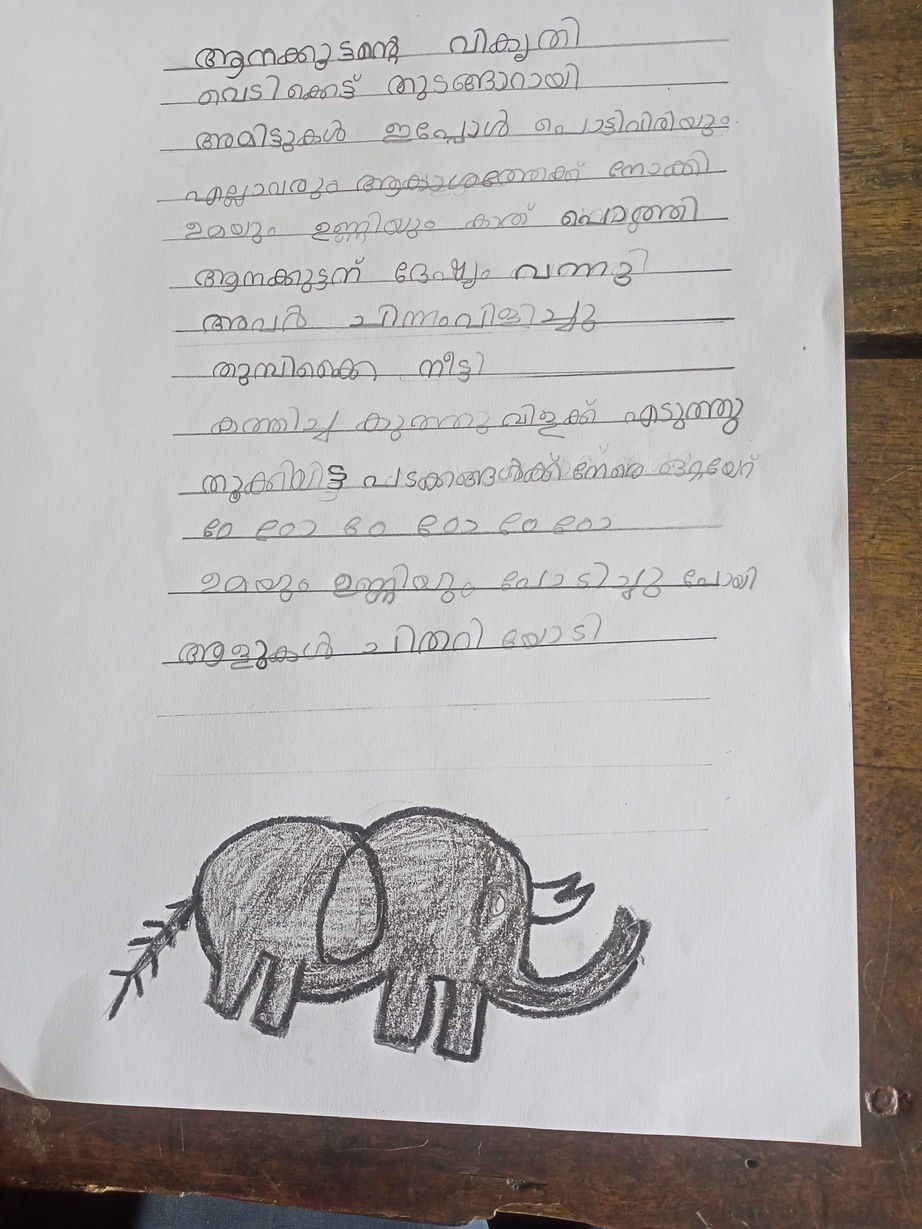 ആനക്കുട്ടന്റെ വികൃതി
വെടിക്കെട്ട് തുടങ്ങാറായി
അമിട്ടുകൾ ഇപ്പോൾ പൊട്ടിവിരിയും.
എല്ലാവരും ആകാശത്തേക്ക് നോക്കി
ഉമയും ഉണ്ണിയും കാത് പൊത്തി
ആനക്കുട്ടന് ദേഷ്യം വന്നു
അവൻ ചിന്നംവിളിച്ചു
തുമ്പിക്കൈ നീട്ടി
കത്തിച്ച കുത്തുവിളക്ക് എടുത്തു
തൂക്കിയിട്ട പടക്കങ്ങൾക്ക് നേരെ ഒറ്റയേറ്
ഠേ ഠോ ഠേ ഠോ ഠേ ഠോ
ഉമയും ഉണ്ണിയും പേടിച്ചു പോയി
ആളുകൾ ചിതറി യോടി